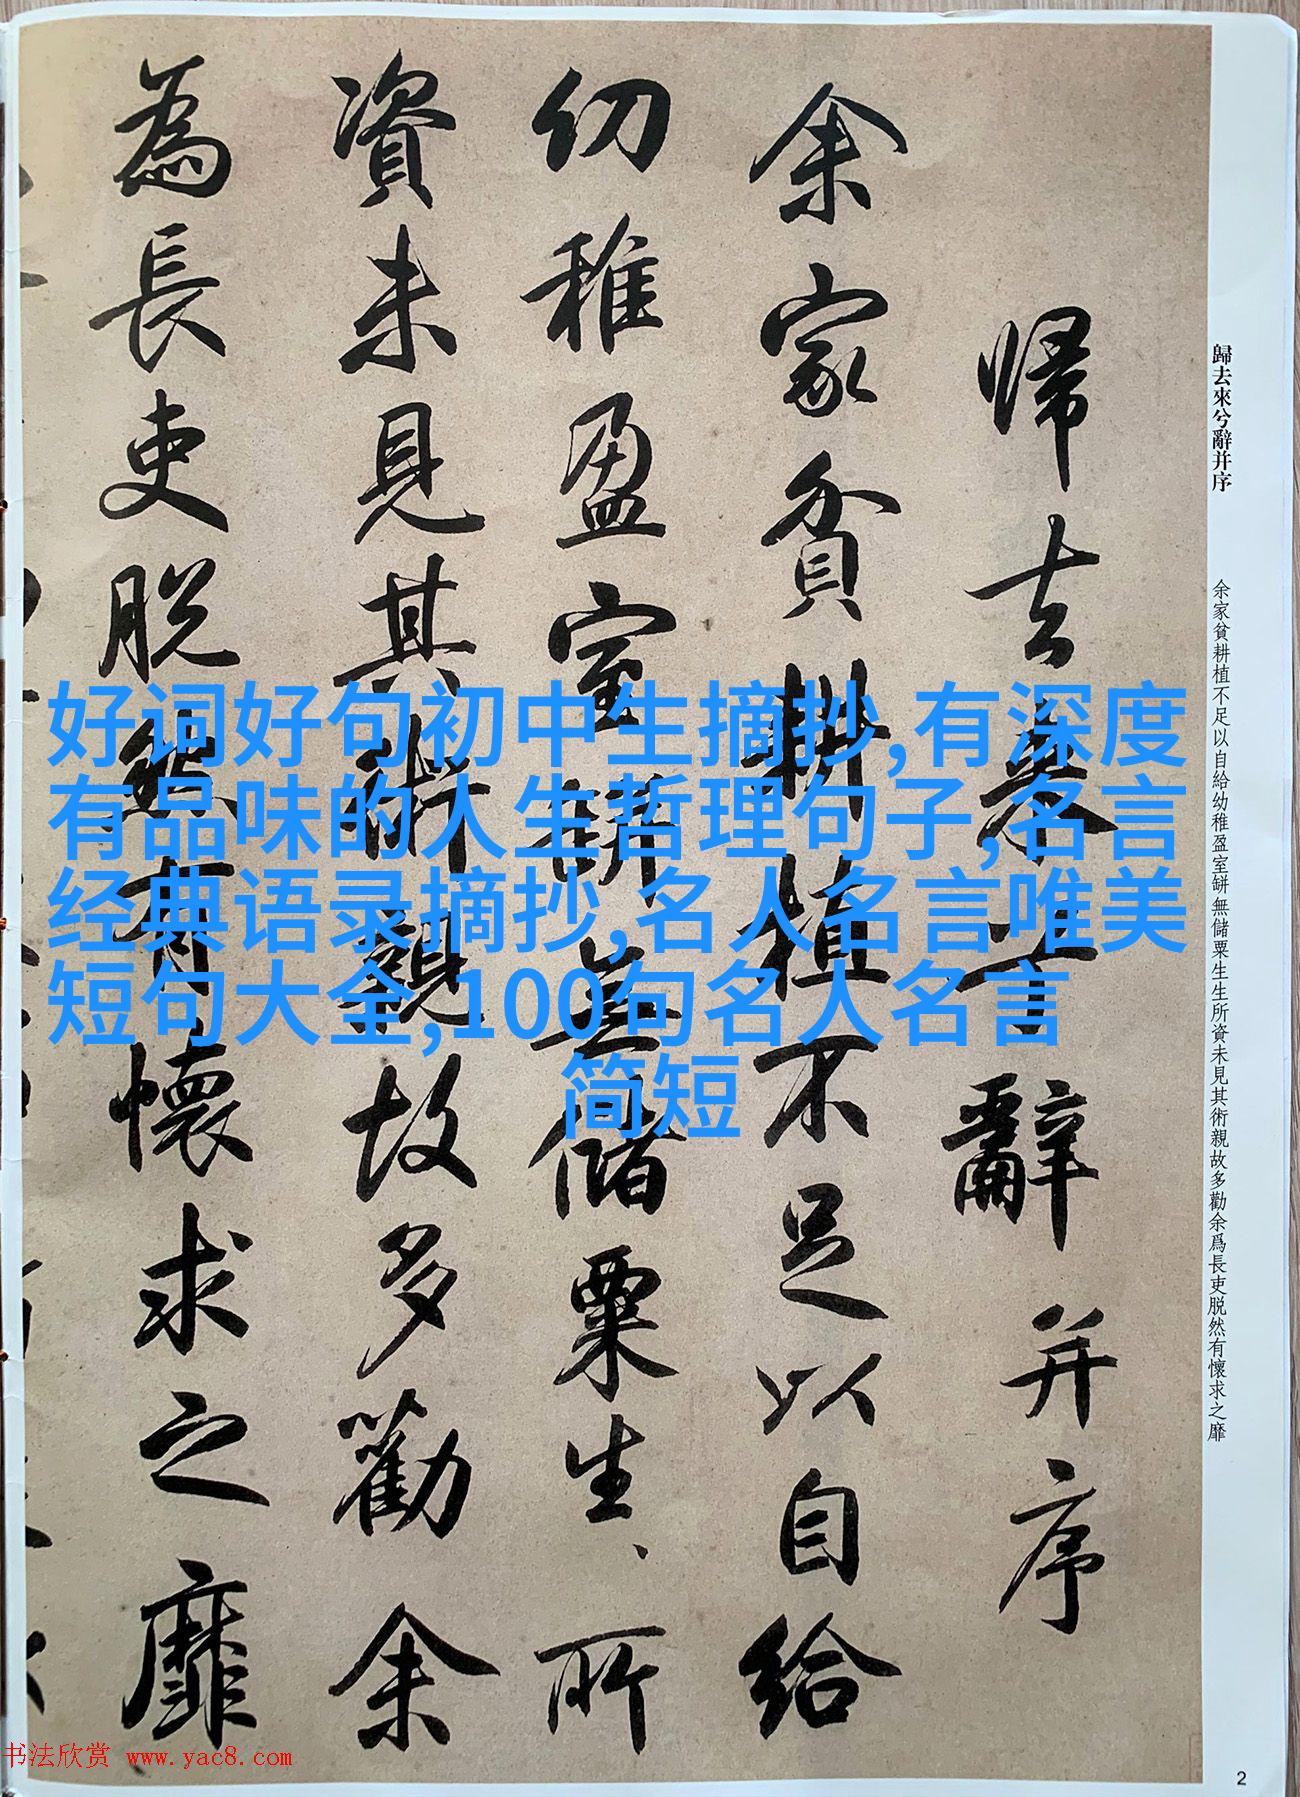 歸去來兮辭并序
余家貧耕植不足以自給幼稚盈室缾無儲粟生生所資未見其術親故多勸余爲長吏脱然有懷求之靡
帰去来兮辭并序
余家貧耕植不足以自給
幼稚盈室缾無儲粟生、所
資未見其術親故多勸余
為長吏脱然有懷求之靡
好词好句初中生摘抄,有深度
有品味的人生哲理句子,名言
经典语录摘抄,名人名言唯美
短句大全,100句名人名言
简短
书法欣赏 www.yac8.com
2